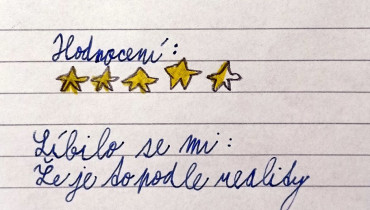 Hodnocení:
Líbilo se mi:
Že je to podle reality